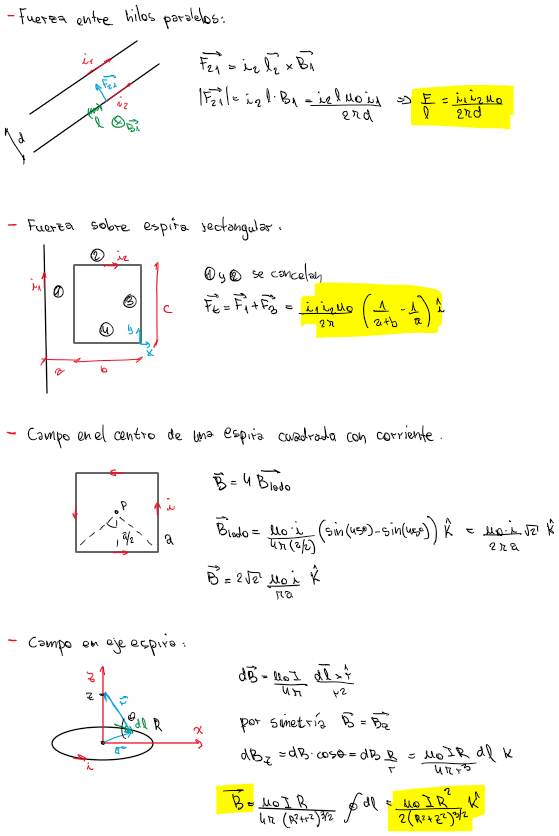 - Fuerza entre hilos paralelos:
i₁
F₂₁
i₂
l
⊗ B₁
d
F₂₁ = i₂ l₂ × B₁
|F₂₁| = i₂ l · B₁ = i₂ l μ₀ i₁ / 2πd ⇒ F/l = i₁ i₂ μ₀ / 2πd
- Fuerza sobre espira rectangular.
i₁
①
②
i₂
③
④
y
x
c
a
b
① y ② se cancelan
F_t = F₁ + F₃ = i₁ i₂ μ₀ / 2π (1/(a+b) - 1/a) î
- Campo en el centro de una espira cuadrada con corriente.
P
i
a/2
a
B = 4 B_lado
B_lado = μ₀ · i / 4π(a/2) (sin(45º) - sin(45º)) K̂ = μ₀ · i / 2πa √2 K̂
B = 2√2 μ₀ i / πa K̂
- Campo en eje espira:
z
z
r
θ
dl
R
x
i
dB = μ₀ I / 4π dl × r̂ / r²
por simetría B = B_z
dB_z = dB · cosθ = dB R/r = μ₀ I R / 4π r³ dl K
B = μ₀ I R / 4π (R² + z²)^3/2 ∮ dl = μ₀ I R² / 2(R² + z²)^3/2 K̂